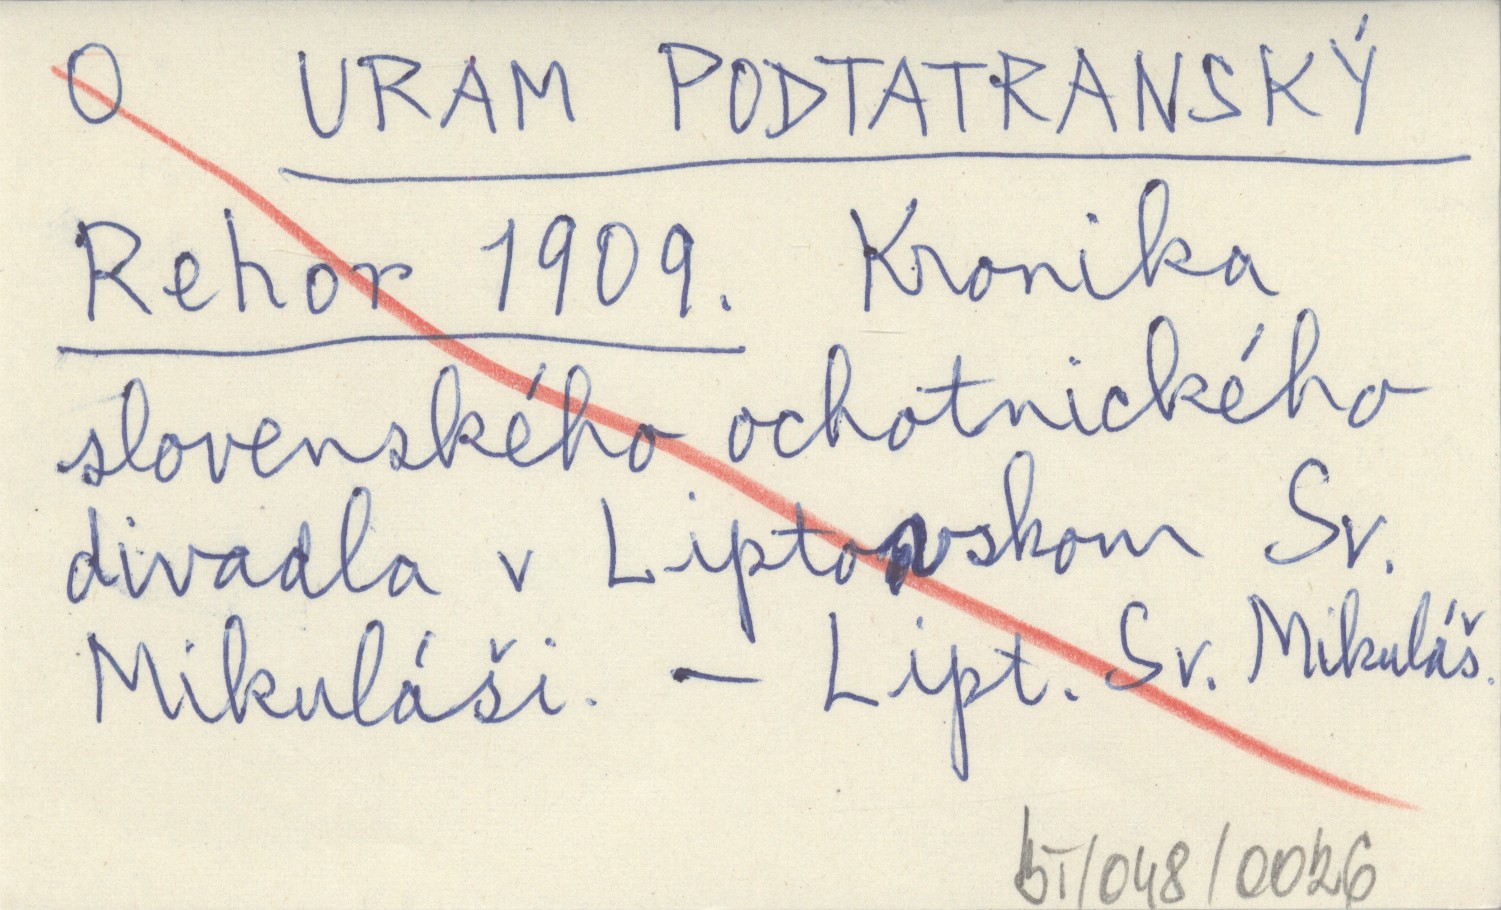 O URAM PODTATRANSKÝ
Rehor 1909. Kronika
slovenského ochotnického
divadla v Liptovskom Sv.
Mikuláši. – Lipt. Sv. Mikuláš.
bT/048/0026